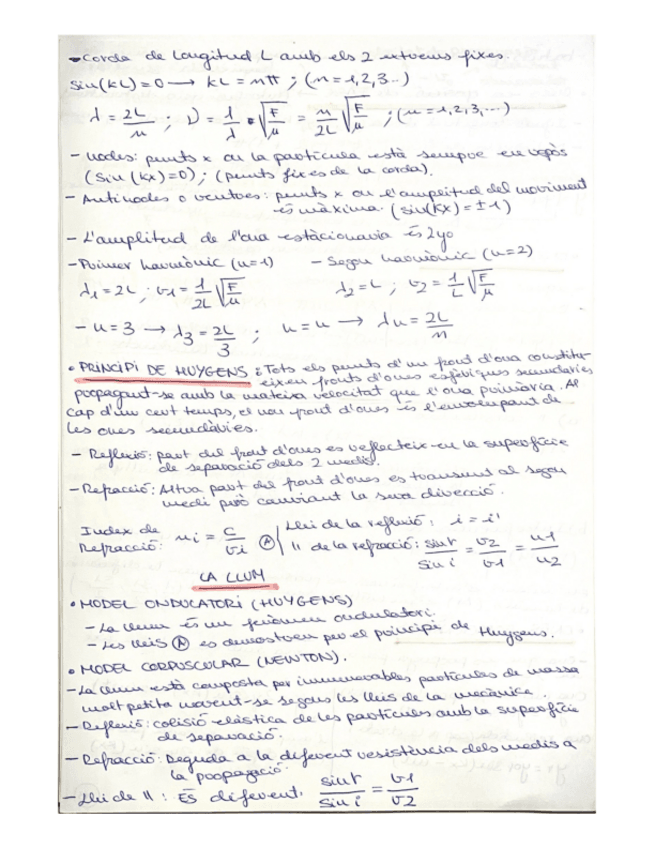 - Corda de Longitud L amb els 2 extrems fixes.
sin(kL)=0 → kL = nπ ; (n=1,2,3..)
λ = 2L/n ; ν = 1/λ • √(F/μ) = n/2L √(F/μ) ; (n=1,2,3,...)
- Nodes: punts x on la partícula està sempre en repòs
(sin(kx)=0); (punts fixes de la corda).
- Antinodes o ventres: punts x on l'amplitud del moviment
és màxima. (sin(kx)=±1)
- L'amplitud de l'ona estàcionaria és 2yo
- Primer harmònic (n=1) - Segon harmònic (n=2)
λ1 = 2L ; v1 = 1/2L √(F/μ) λ2 = L ; v2 = 1/L √(F/μ)
- n=3 → λ3 = 2L/3 ; n=n → λn = 2L/n
• PRINCIPI DE HUYGENS: Tots els punts d'un front d'ona constitu-
eixen fronts d'ones esfèriques secundàries
propagant-se amb la mateixa velocitat que l'ona primària. Al
cap d'un cert temps, el nou front d'ones és l'envolupant de
les ones secundàries.
- Reflexió: part del front d'ones es reflecteix en la superfície
de separació dels 2 medis.
- Refracció: Altra part del front d'ones es transmet al segon
medi però canviant la seva direcció.
Index de Refracció: ni = c/vi Ⓐ | Llei de la reflexió: i = i'
" de la refracció: sin r/sin i = v2/v1 = n1/n2
LA LLUM
• MODEL ONDULATORI (HUYGENS)
- La llum és un fenòmen ondulatori.
- Les lleis Ⓐ es demostren per el principi de Huygens.
• MODEL CORPUSCULAR (NEWTON).
- La llum està composta per innumerables partícules de massa
molt petita movent-se segons les lleis de la mecànica.
- Reflexió: colisió elàstica de les partícules amb la superfície
de separació.
- Refracció: Deguda a la diferent resistència dels medis a
la propagació.
- Llei de " : ÉS diferent. sin r/sin i = v1/v2